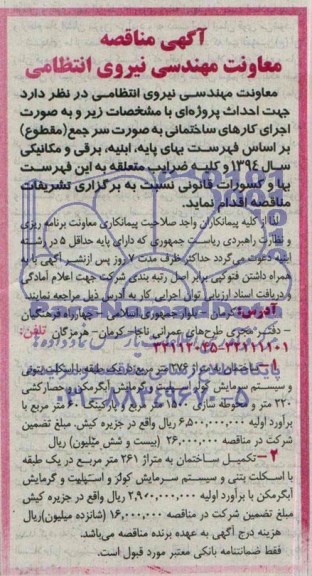 آگهی مناقصه
معاونت مهندسی نیروی انتظامی
معاونت مهندسی نیروی انتظامی در نظر دارد
جهت احداث پروژه‌ای با مشخصات زیر و به صورت
اجرای کارهای ساختمانی به صورت سر جمع (مقطوع)
بر اساس فهرست بهای پایه، ابنیه، برقی و مکانیکی
سال ۱۳۹۴ و کلیه ضرایب متعلقه به این فهرست
بها و کسورات قانونی نسبت به برگزاری تشریفات
مناقصه اقدام نماید.
لذا از کلیه پیمانکاران واجد صلاحیت پیمانکاری معاونت برنامه ریزی
و نظارت راهبردی ریاست جمهوری که دارای پایه حداقل ۵ در رشته
ابنیه دعوت می‌گردد حداکثر ظرف مدت ۷ روز پس از نشر آگهی با به
همراه داشتن فتوکپی برابر اصل رتبه بندی شرکت جهت اعلام آمادگی
و دریافت اسناد ارزیابی توان اجرایی کار به آدرس ذیل مراجعه نمایند.
آدرس: کرمان - بلوار جمهوری اسلامی - چهارراه فرهنگیان
- دفتر مجری طرح‌های عمرانی ناجا- کرمان- هرمزگان تلفن:
۳۲۱۱۲۰۴۵-
۱- ساختمان به متراژ ۲۷۶ متر مربع در یک طبقه با اسکلت بتنی
و سیستم سرمایش کولر اسپلیت و گرمایش آبگرمکن و حصارکشی
۲۲۰ متر و محوطه سازی ۱۵۰۰ متر مربع و پارکینگ ۶۰ متر مربع با
برآورد اولیه ۶,۵۰۰,۰۰۰,۰۰۰ ریال واقع در جزیره کیش. مبلغ تضمین
شرکت در مناقصه ۲۶,۰۰۰,۰۰۰ (بیست و شش میلیون) ریال
۲- تکمیل ساختمان به متراژ ۲۶۱ متر مربع در یک طبقه
با اسکلت بتنی و سیستم سرمایش کولر و اسپلیت و گرمایش
آبگرمکن با برآورد اولیه ۲,۹۰۰,۰۰۰,۰۰۰ ریال واقع در جزیره کیش
مبلغ تضمین شرکت در مناقصه ۱۶,۰۰۰,۰۰۰ (شانزده میلیون) ریال
هزینه درج آگهی به عهده برنده مناقصه می‌باشد.
فقط ضمانتنامه بانکی معتبر مورد قبول است.
۰۲۱-۸۸۳۴۹۶۷۰-۵